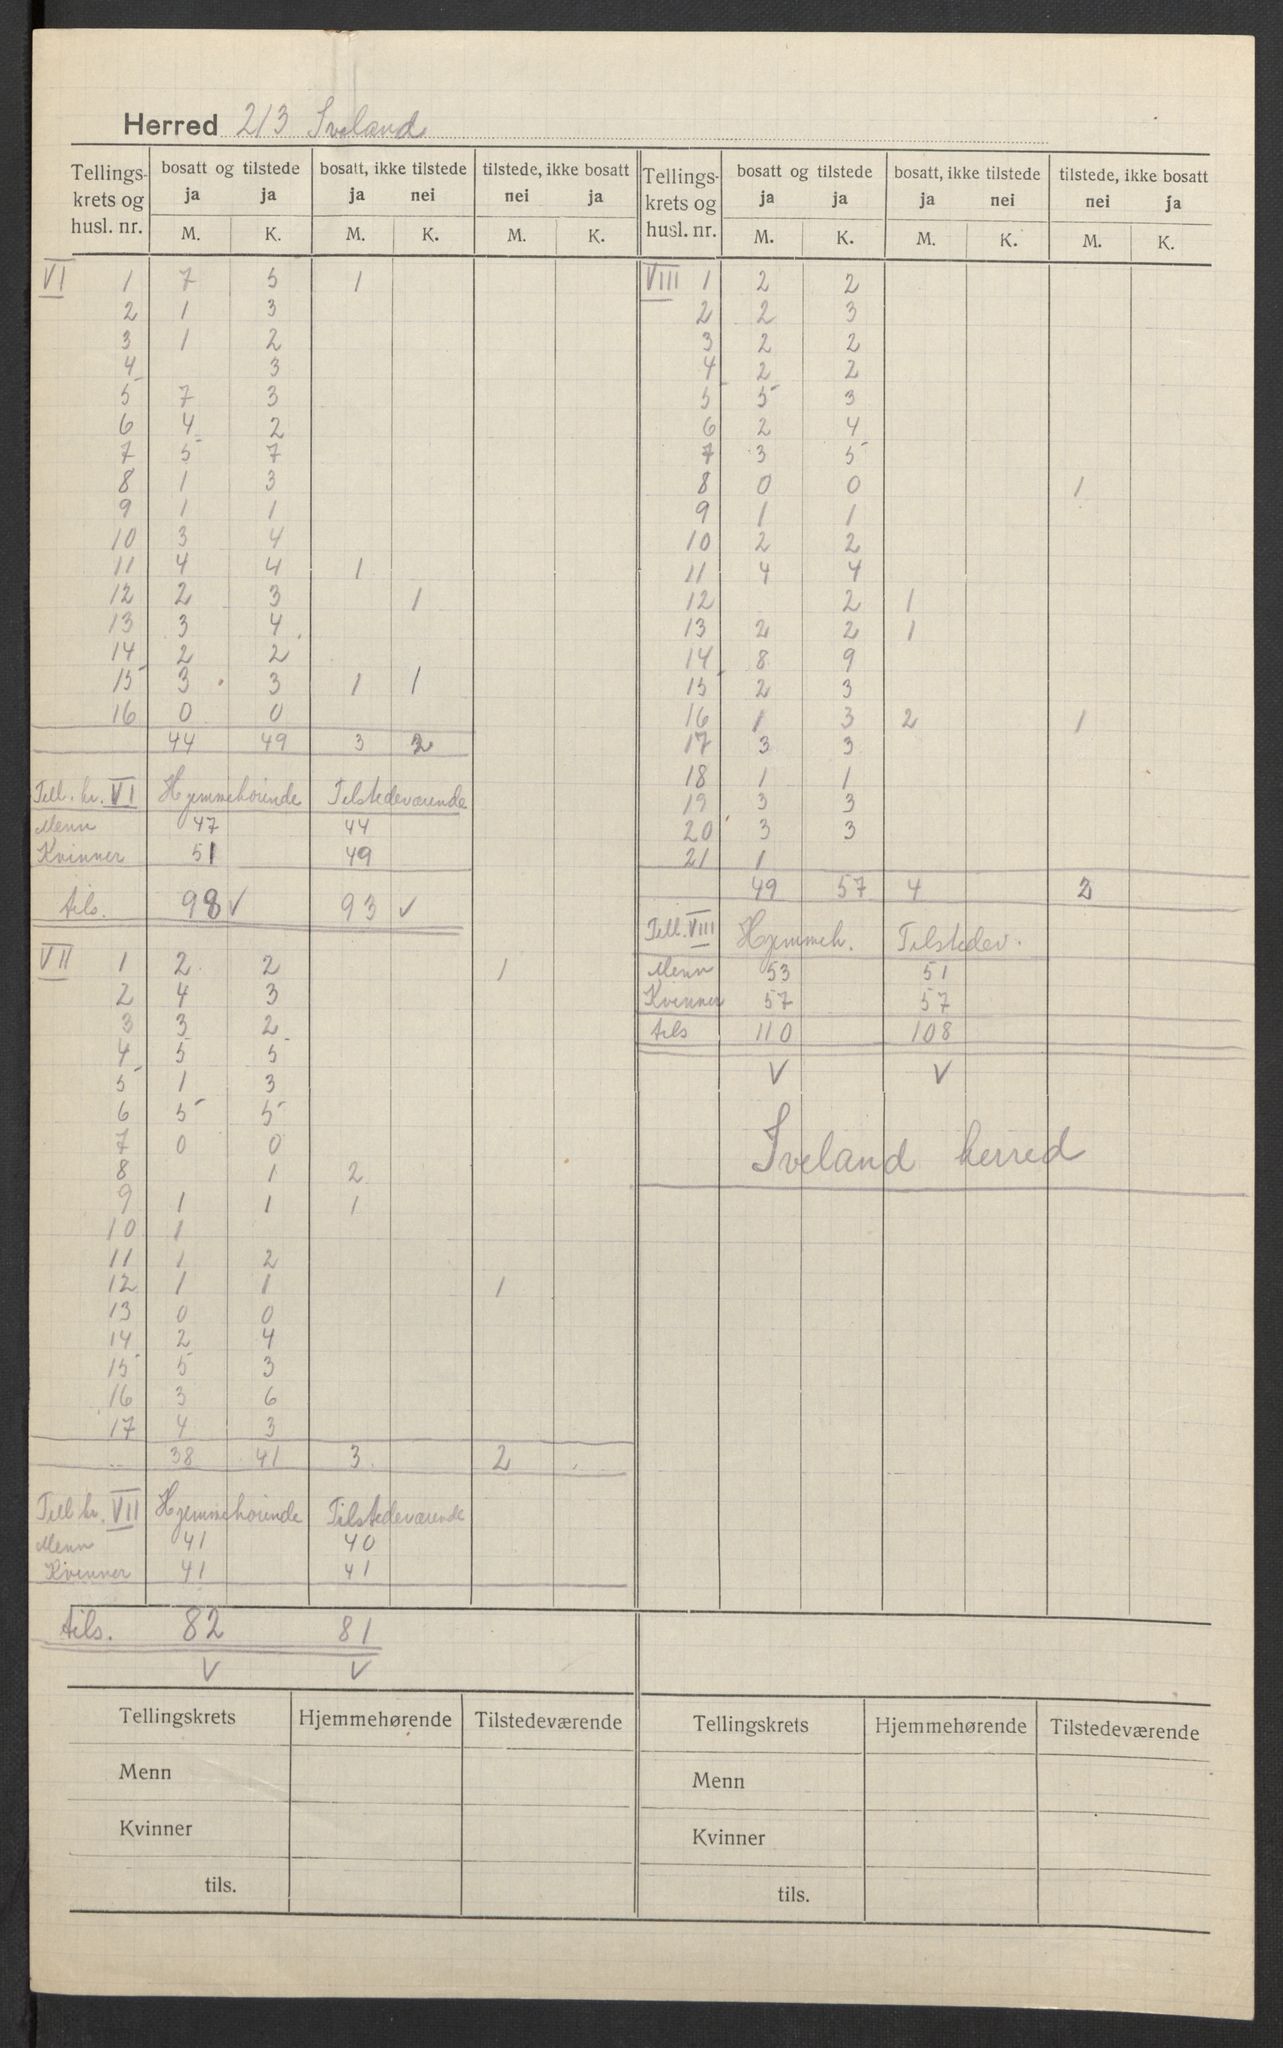 Herred 213 Iveland
Tellings- krets og husl. nr. | bosatt og tilstede ja ja M. K. | bosatt, ikke tilstede ja nei M. K. | tilstede, ikke bosatt nei ja M. K.
VI 1 7 5 1
2 1 3
3 1 2
4 3
5 7 3
6 4 2
7 5 7
8 1 3
9 1 1
10 3 4
11 4 4 1
12 2 3 1
13 3 4
14 2 2
15 3 3 1 1
16 0 0
44 49 3 2
Tell. kr. VI Hjemmehørende Tilstedeværende
Menn 47 44
Kvinner 51 49
tils. 98 ✓ 93 ✓
VII 1 2 2 1
2 4 3
3 3 2
4 5 5
5 1 3
6 5 5
7 0 0
8 1 2
9 1 1 1
10 1
11 1 2
12 1 1 1
13 0 0
14 2 4
15 5 3
16 3 6
17 4 3
38 41 3 2
Tell. kr. VII Hjemmehørende Tilstedeværende
Menn 41 40
Kvinner 41 41
tils. 82 81
✓ ✓
Tellings- krets og husl. nr. | bosatt og tilstede ja ja M. K. | bosatt, ikke tilstede ja nei M. K. | tilstede, ikke bosatt nei ja M. K.
VIII 1 2 2
2 2 3
3 2 2
4 2 2
5 5 3
6 2 4
7 3 5
8 0 0 1
9 1 1
10 2 2
11 4 4
12 2 1
13 2 2 1
14 8 9
15 2 3
16 1 3 2 1
17 3 3
18 1 1
19 3 3
20 3 3
21 1
49 57 4 2
Tell. VIII Hjemmeh. Tilstedev.
Menn 53 51
Kvinner 57 57
tils 110 108
✓ ✓
Iveland herred
Tellingskrets Hjemmehørende Tilstedeværende
Menn
Kvinner
tils.
Tellingskrets Hjemmehørende Tilstedeværende
Menn
Kvinner
tils.